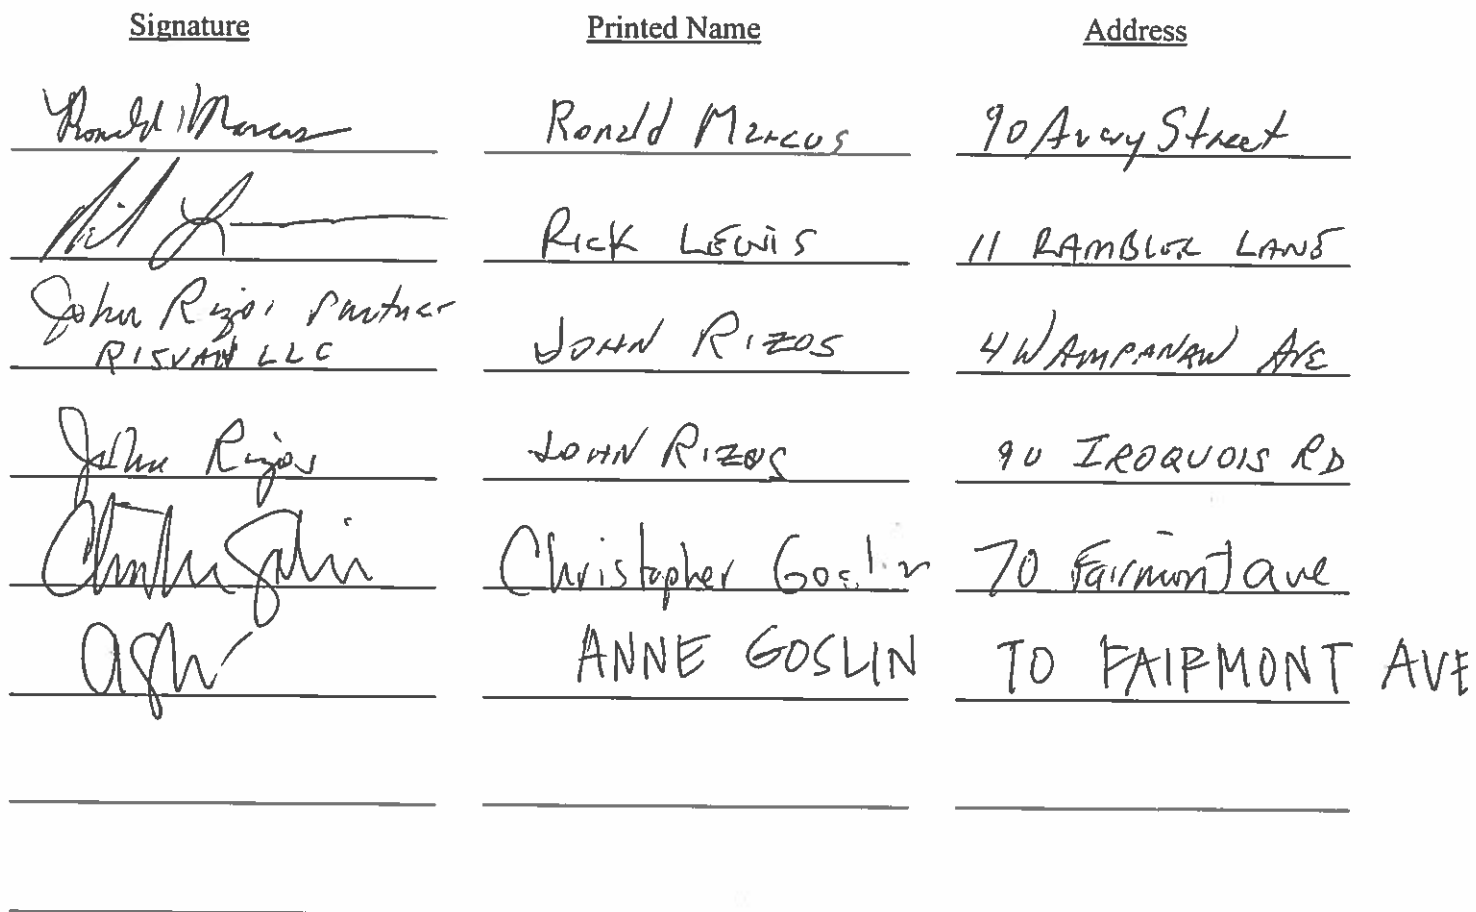 Signature Printed Name Address
Ronald Marcus Ronald Marcus 90 Avery Street
Rick L RICK LEWIS 11 RAMBLER LANE
John Rizos Partner
RISVAN LLC JOHN RIZOS 4 WAMPANAW AVE
John Rizos JOHN RIZOS 90 IROQUOIS RD
Christopher Goslin 70 Fairmont ave
ANNE GOSLIN 70 FAIRMONT AVE